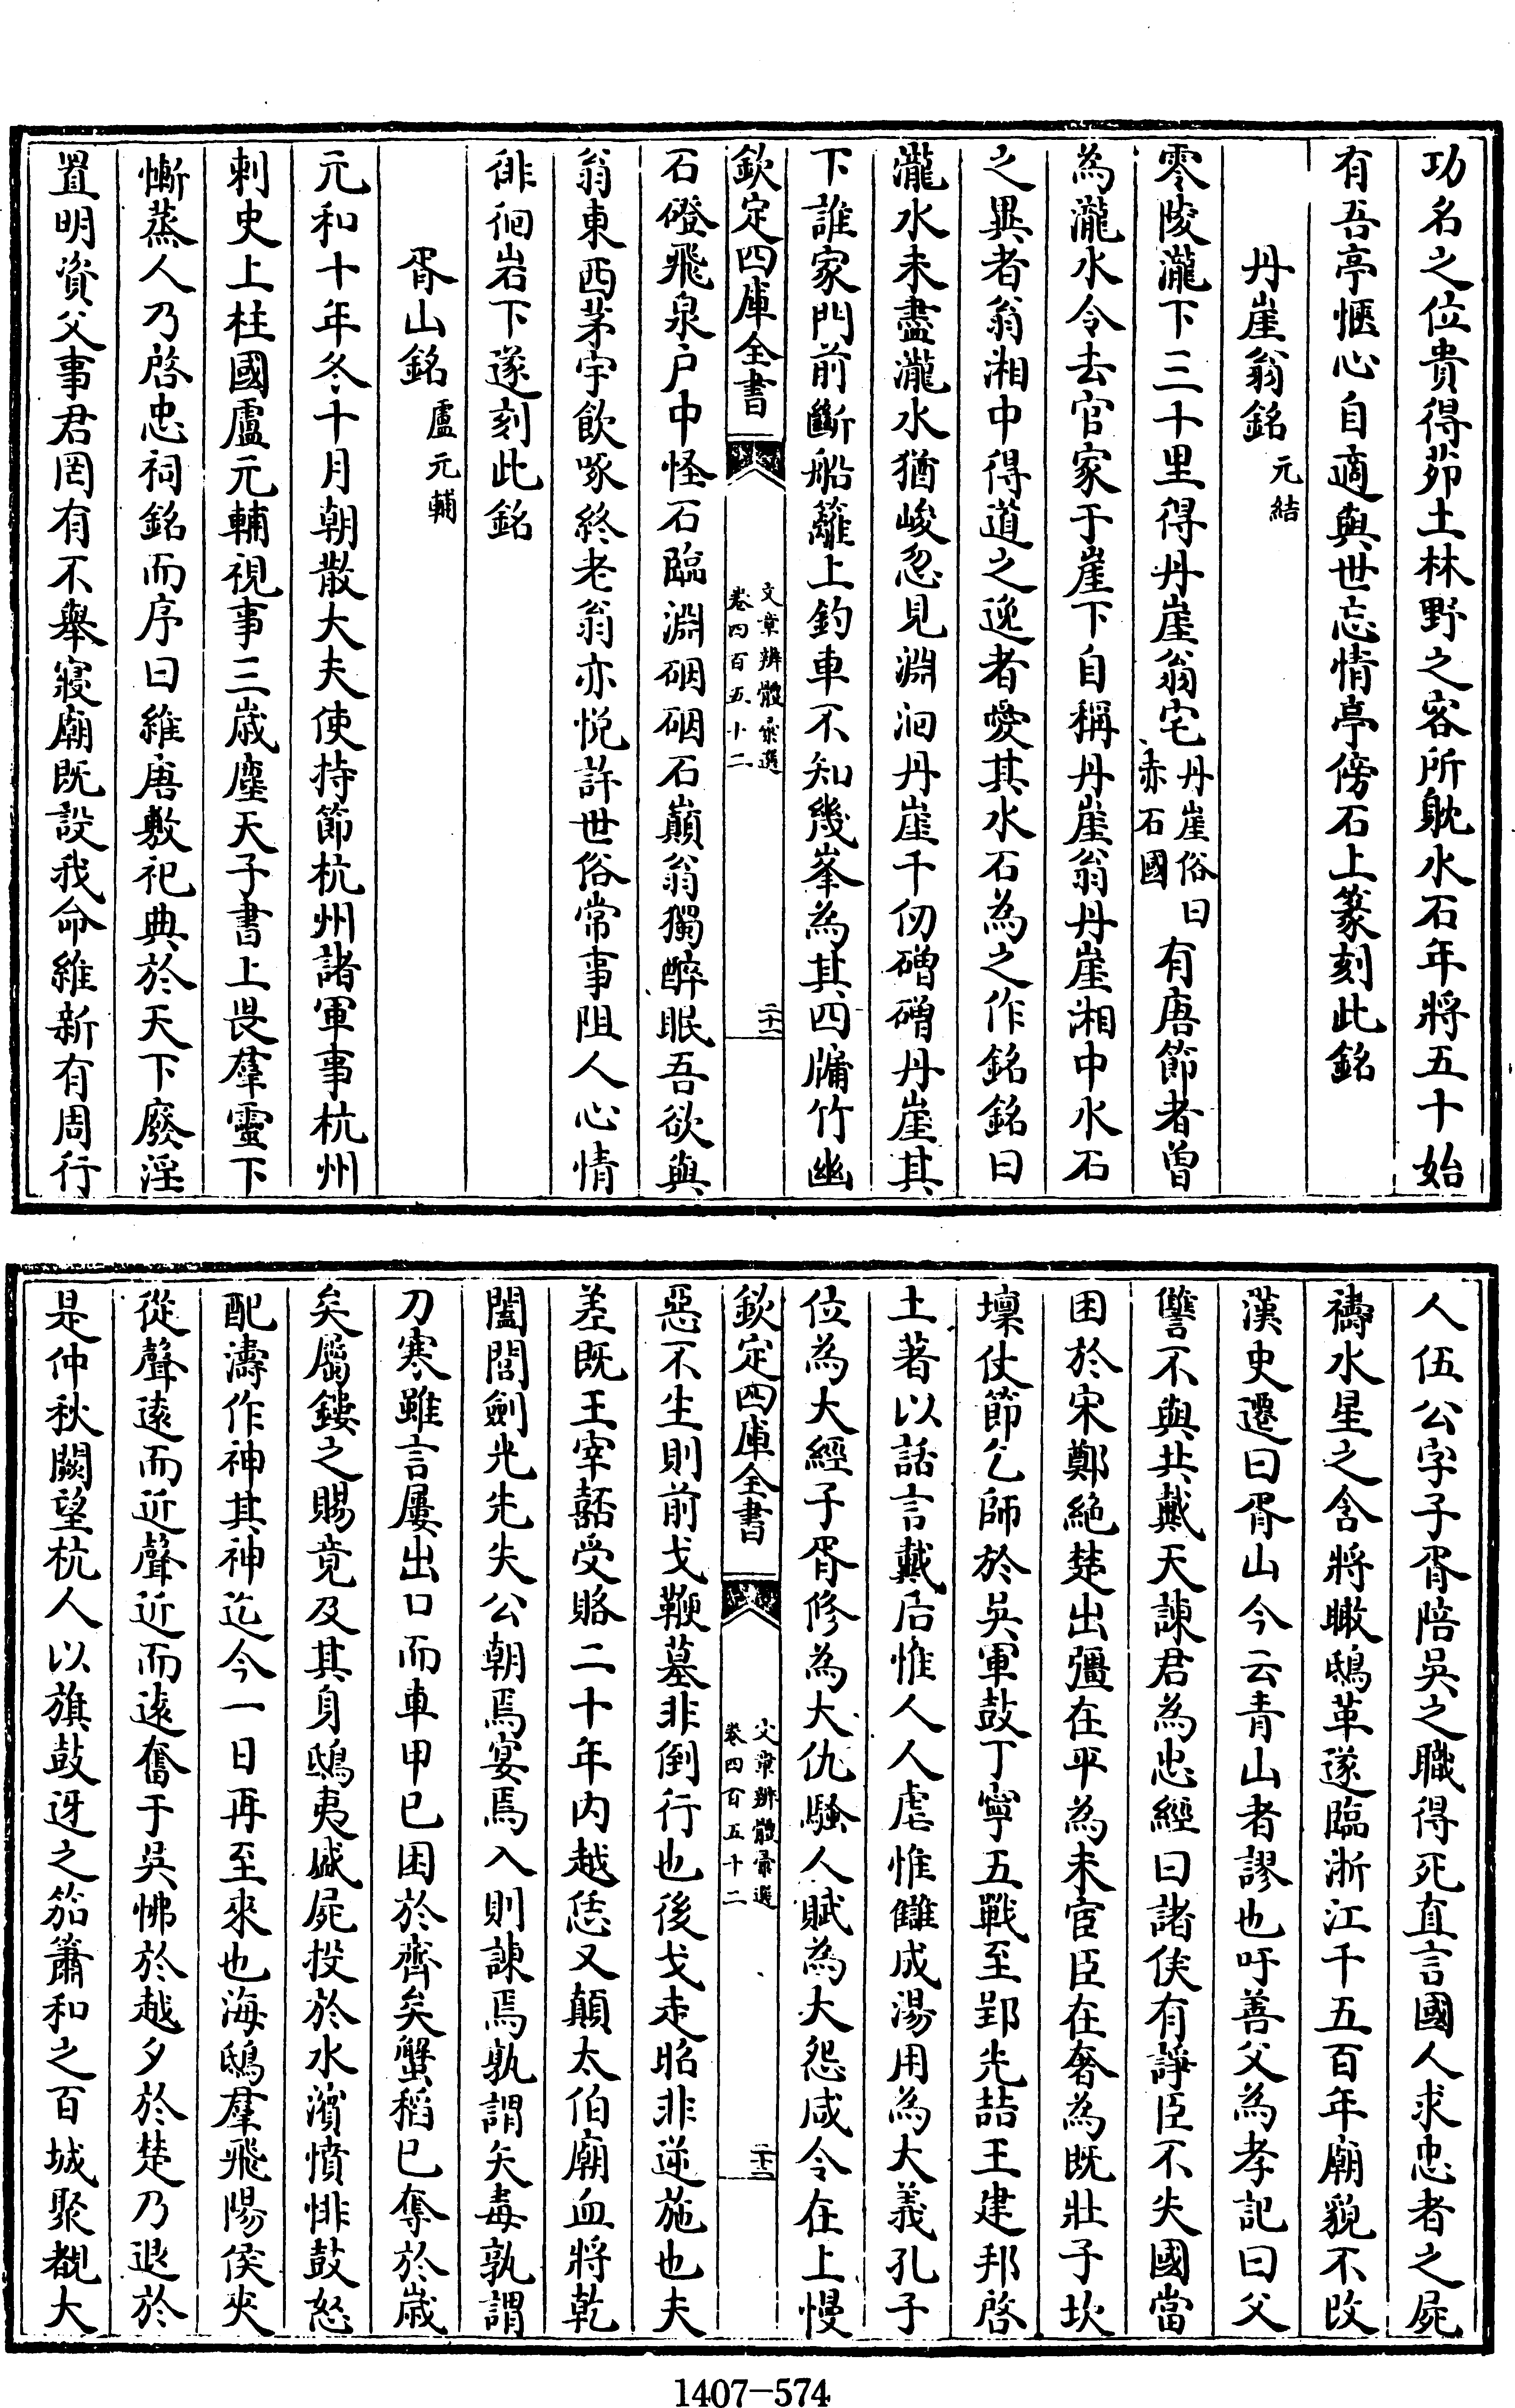 功名之位貴得茆土林野之客所躭水石年將五十始
有吾亭愜心自適與世忘情亭傍石上篆刻此銘
丹崖翁銘 元結
零陵瀧下三十里得丹崖翁宅 丹崖俗曰赤石國 有唐節者曾
為瀧水令去官家于崖下自稱丹崖翁丹崖湘中水石
之異者翁湘中得道之逸者愛其水石為之作銘銘曰
瀧水未盡瀧水猶峻忽見淵洄丹崖千仞磳磳丹崖其
下誰家門前斷船籬上釣車不知幾峯為其四牖竹幽
欽定四庫全書 文章辨體彙選 卷四百五十二 二十一
石磴飛泉户中怪石臨淵硱硱石巔翁獨醉眠吾欲與
翁東西茅宇飲啄終老翁亦悦許世俗常事阻人心情
徘徊岩下遂刻此銘
胥山銘 盧元輔
元和十年冬十月朝散大夫使持節杭州諸軍事杭州
刺史上柱國盧元輔視事三歲塵天子書上畏羣靈下
慚蒸人乃啓忠祠銘而序曰維唐敷祀典於天下廢淫
置明資父事君罔有不舉寢廟既設我命維新有周行
人伍公字子胥陪吳之職得死直言國人求忠者之屍
禱水星之舍將瞰鴟革遂臨浙江千五百年廟貌不改
漢史遷曰胥山今云青山者謬也吁善父為孝記曰父
讐不與共戴天諫君為忠經曰諸侯有諍臣不失國當
困於宋鄭絶楚出彊在平為未宦臣在奢為既壯子坎
壈仗節乞師於吳軍鼓丁寧五戰至郢先喆王建邦啓
土著以話言戴后惟人人虐惟讎成湯用為大義孔子
位為大經子胥修為大仇騷人賦為大怨咸令在上慢
欽定四庫全書 文章辨體彙選 卷四百五十二 二十二
惡不生則前戈鞭墓非倒行也後戈走昭非逆施也夫
差既王宰嚭受賂二十年内越恁又顛太伯廟血將乾
闔閭劍光先失公朝焉宴焉入則諫焉孰謂矢毒孰謂
刀寒雖言屢出口而車甲已困於齊矣蟹稻已奪於歲
矣屬鏤之賜竟及其身鴟夷盛屍投於水濱憤悱鼓怒
配濤作神其神迄今一日再至來也海鴟羣飛陽侯夾
從聲遠而近聲近而遠奮于吳怫於越夕於楚乃退於
是仲秋闕望杭人以旗鼓迓之笳簫和之百城聚覩大
1407-574